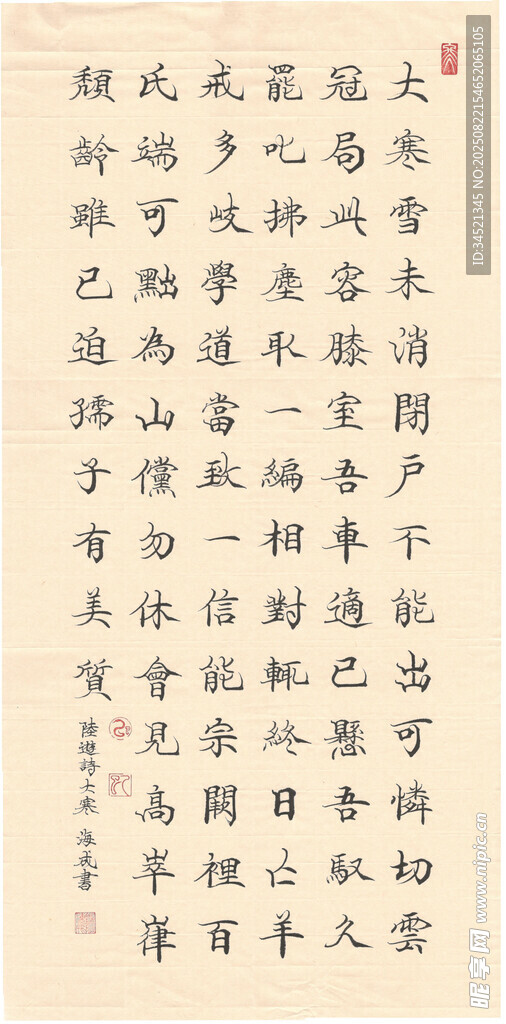 大寒雪未消閉戶不能出可憐切雲
冠局此容膝室吾車適已懸吾馭久
罷叱拂塵取一編相對輒終日亡羊
戒多岐學道當致一信能宗闕裡百
氏端可黜為山儻勿休會見高崒嵂
頽齡雖已迫孺子有美質
陸遊詩大寒 海成書
ID:34521345 NO:20250822154652065105
昵享网 www.nipic.cn